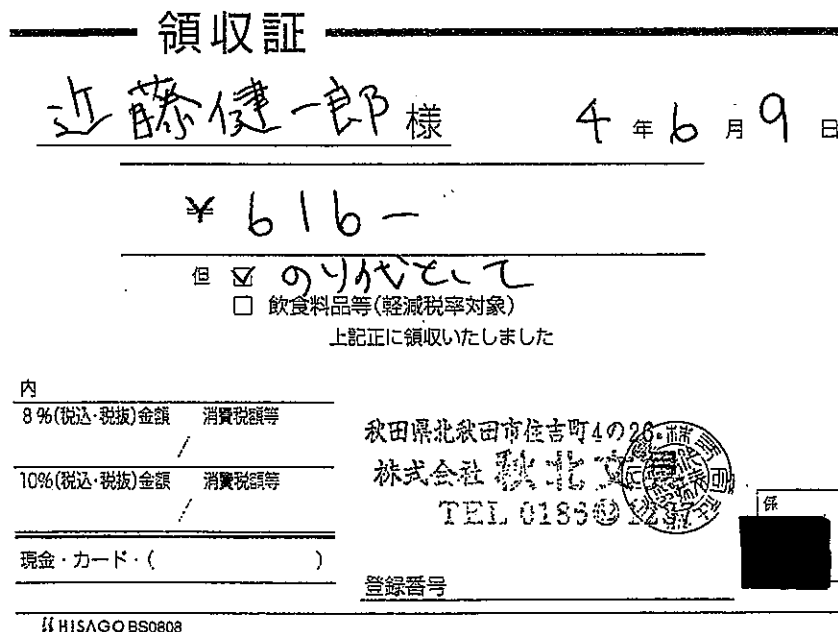 領収証
近藤健一郎 様 4年6月9日
¥616-
但 ☑ のり代として
□ 飲食料品等(軽減税率対象)
上記正に領収いたしました
内
8%(税込・税抜)金額 消費税額等
/
10%(税込・税抜)金額 消費税額等
/
現金・カード・( )
秋田県北秋田市住吉町4の26
株式会社 秋北
TEL 0186
係
登録番号
HISAGO BS0808